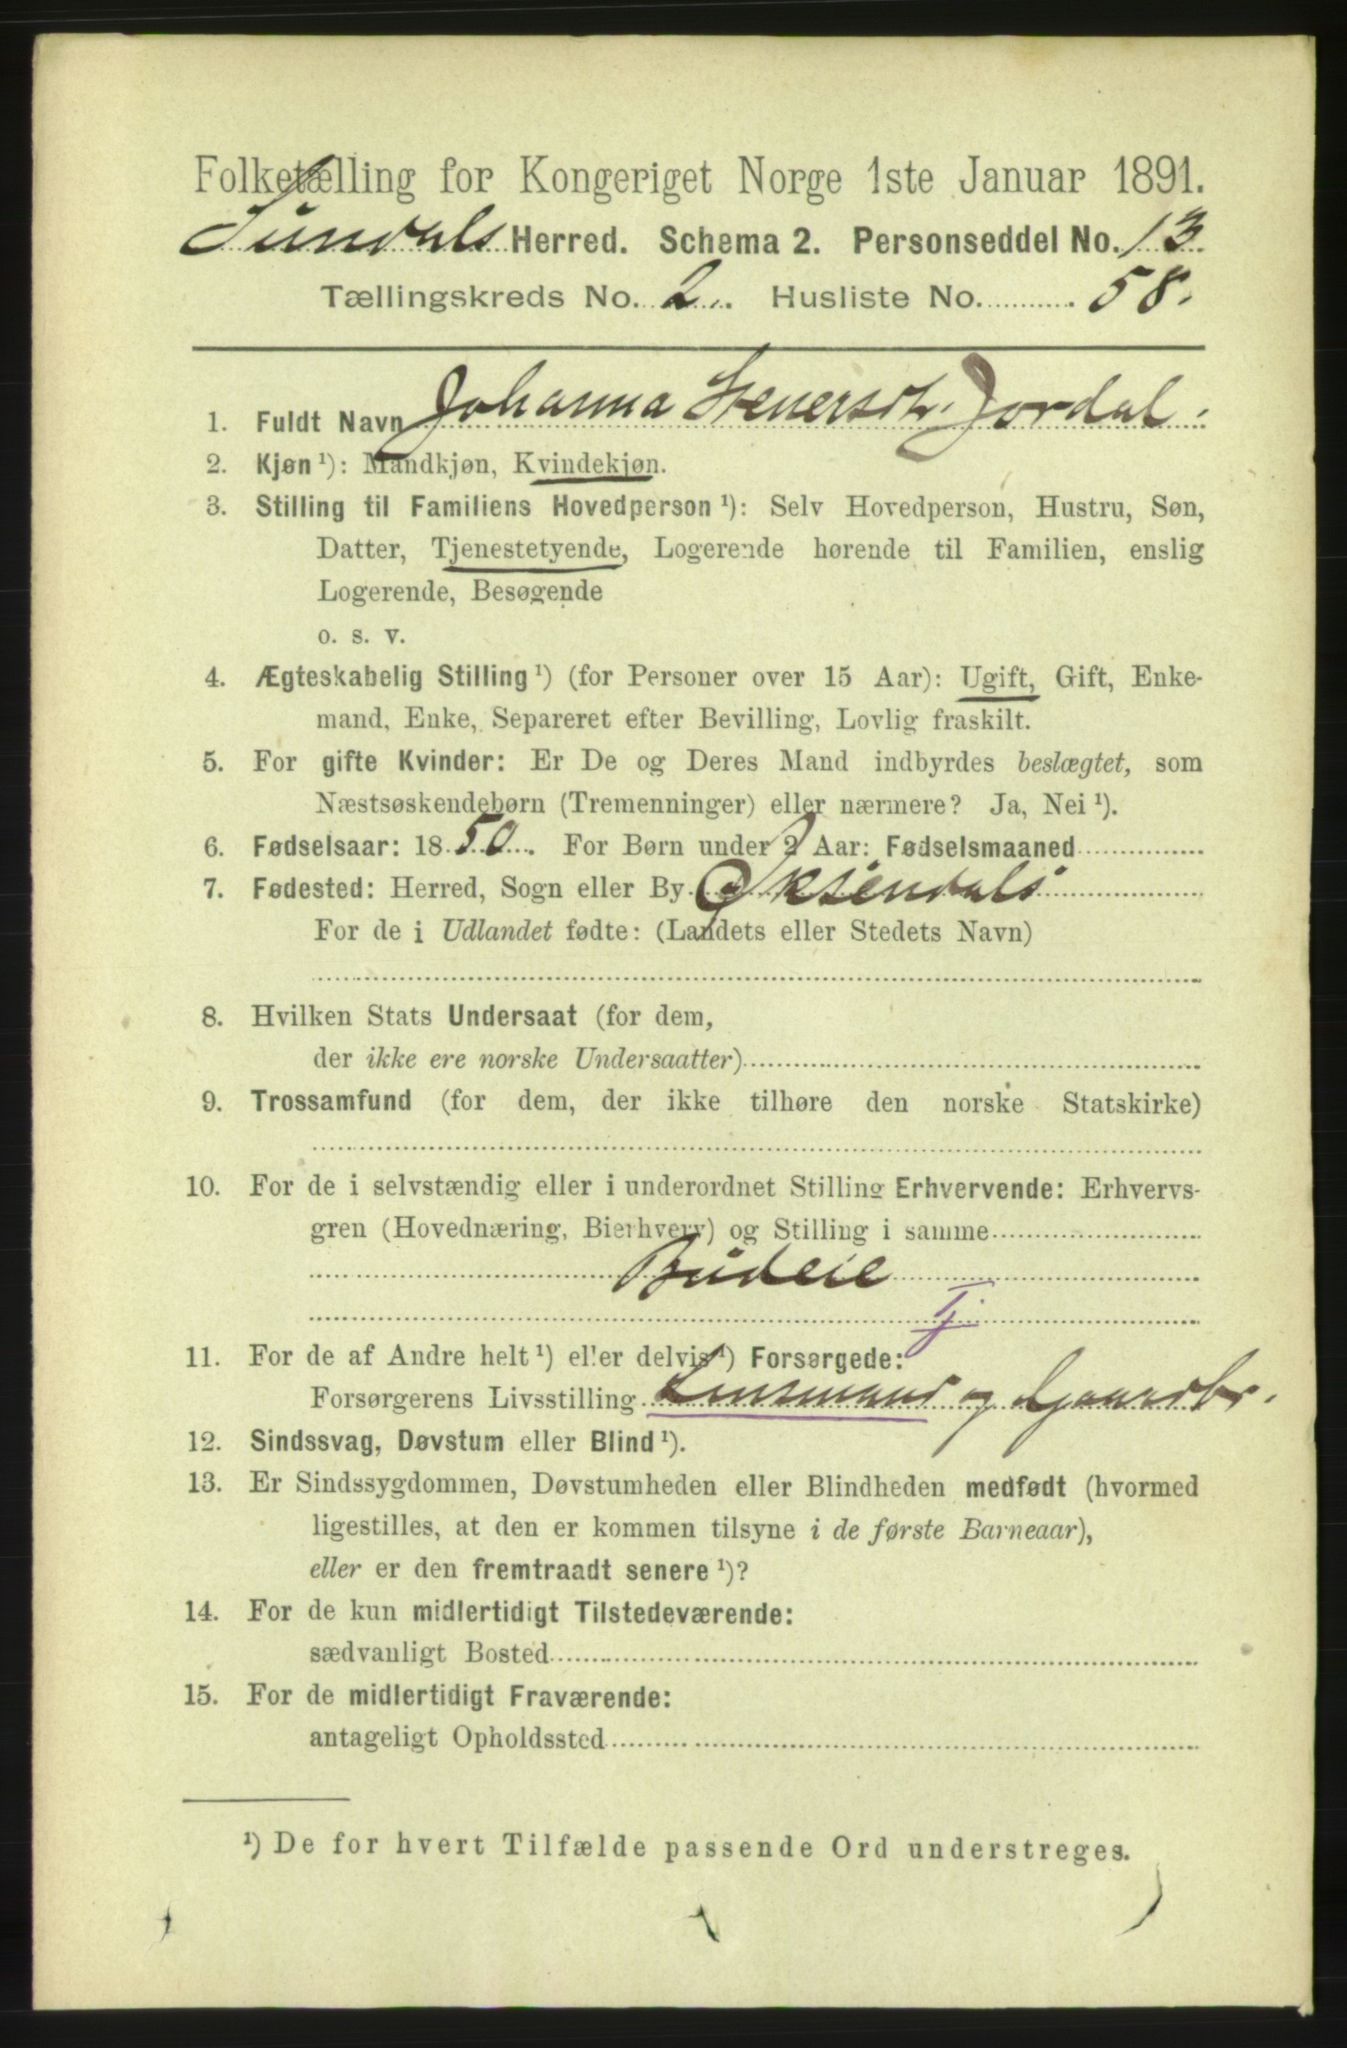 Folketælling for Kongeriget Norge 1ste Januar 1891.
Sundals Herred. Schema 2. Personseddel No. 13
Tællingskreds No. 2. Husliste No. 58.
1. Fuldt Navn Johanna Stenersdtr. Jordal.
2. Kjøn ¹): Mandkjøn, Kvindekjøn.
3. Stilling til Familiens Hovedperson ¹): Selv Hovedperson, Hustru, Søn,
Datter, Tjenestetyende, Logerende hørende til Familien, enslig
Logerende, Besøgende
o. s. v.
4. Ægteskabelig Stilling ¹) (for Personer over 15 Aar): Ugift, Gift, Enke-
mand, Enke, Separeret efter Bevilling, Lovlig fraskilt.
5. For gifte Kvinder: Er De og Deres Mand indbyrdes beslægtet, som
Næstsøskendebørn (Tremenninger) eller nærmere? Ja, Nei ¹).
6. Fødselsaar: 1850. For Børn under 2 Aar: Fødselsmaaned
7. Fødested: Herred, Sogn eller By Øksendals
For de i Udlandet fødte: (Landets eller Stedets Navn)
8. Hvilken Stats Undersaat (for dem,
der ikke ere norske Undersaatter)
9. Trossamfund (for dem, der ikke tilhøre den norske Statskirke)
10. For de i selvstændig eller i underordnet Stilling Erhvervende: Erhvervs-
gren (Hovednæring, Bierhverv) og Stilling i samme
Budeie
Tj
11. For de af Andre helt ¹) eller delvis ¹) Forsørgede:
Forsørgerens Livsstilling Lensmand og Gaardbr.
12. Sindssvag, Døvstum eller Blind ¹).
13. Er Sindssygdommen, Døvstumheden eller Blindheden medfødt (hvormed
ligestilles, at den er kommen tilsyne i de første Barneaar),
eller er den fremtraadt senere ¹)?
14. For de kun midlertidigt Tilstedeværende:
sædvanligt Bosted
15. For de midlertidigt Fraværende:
antageligt Opholdssted
¹) De for hvert Tilfælde passende Ord understreges.